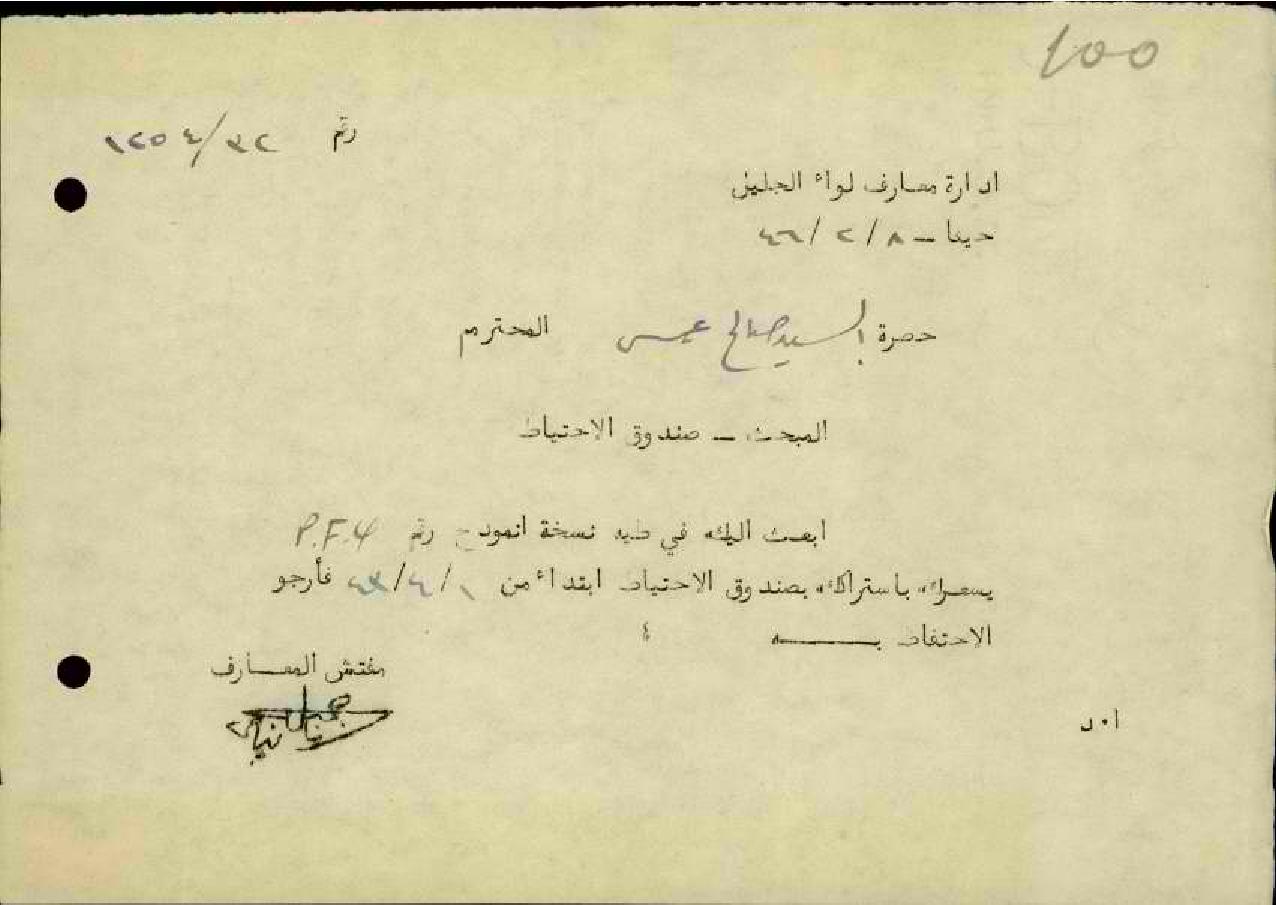 100
رقم ٣٢/١٢٥٤
ادارة معارف لواء الجليل
حيفا – ٤٦/٢/٨
حضرة السيد صالح المحترم
المبحث – صندوق الاحتياط
ابعث اليك في طيه نسخة انموذج رقم P.F.4
يشعرك باشتراكك بصندوق الاحتياط ابتداء من ٤٣/٤/١ فأرجو
الاحتفاظ بـــــه ؛
مفتش المعـــارف
ا٠د